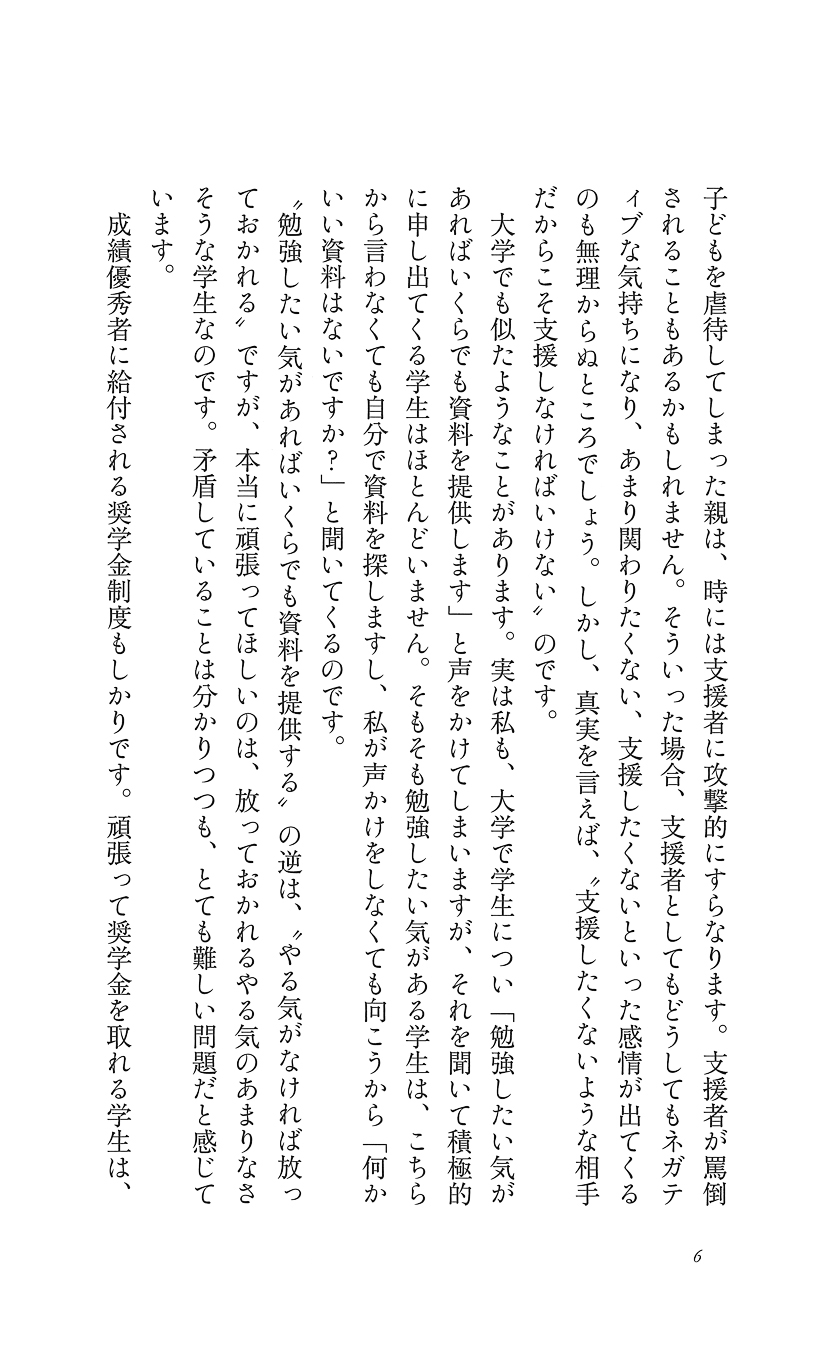 子どもを虐待してしまった親は、時には支援者に攻撃的にすらなります。支援者が罵倒
されることもあるかもしれません。そういった場合、支援者としてもどうしてもネガテ
ィブな気持ちになり、あまり関わりたくない、支援したくないといった感情が出てくる
のも無理からぬところでしょう。しかし、真実を言えば、〝支援したくないような相手
だからこそ支援しなければいけない〟のです。
　大学でも似たようなことがあります。実は私も、大学で学生につい「勉強したい気が
あればいくらでも資料を提供します」と声をかけてしまいますが、それを聞いて積極的
に申し出てくる学生はほとんどいません。そもそも勉強したい気がある学生は、こちら
から言わなくても自分で資料を探しますし、私が声かけをしなくても向こうから「何か
いい資料はないですか？」と聞いてくるのです。
〝勉強したい気があればいくらでも資料を提供する〟の逆は、〝やる気がなければ放っ
ておかれる〟ですが、本当に頑張ってほしいのは、放っておかれるやる気のあまりなさ
そうな学生なのです。矛盾していることは分かりつつも、とても難しい問題だと感じて
います。
　成績優秀者に給付される奨学金制度もしかりです。頑張って奨学金を取れる学生は、
6